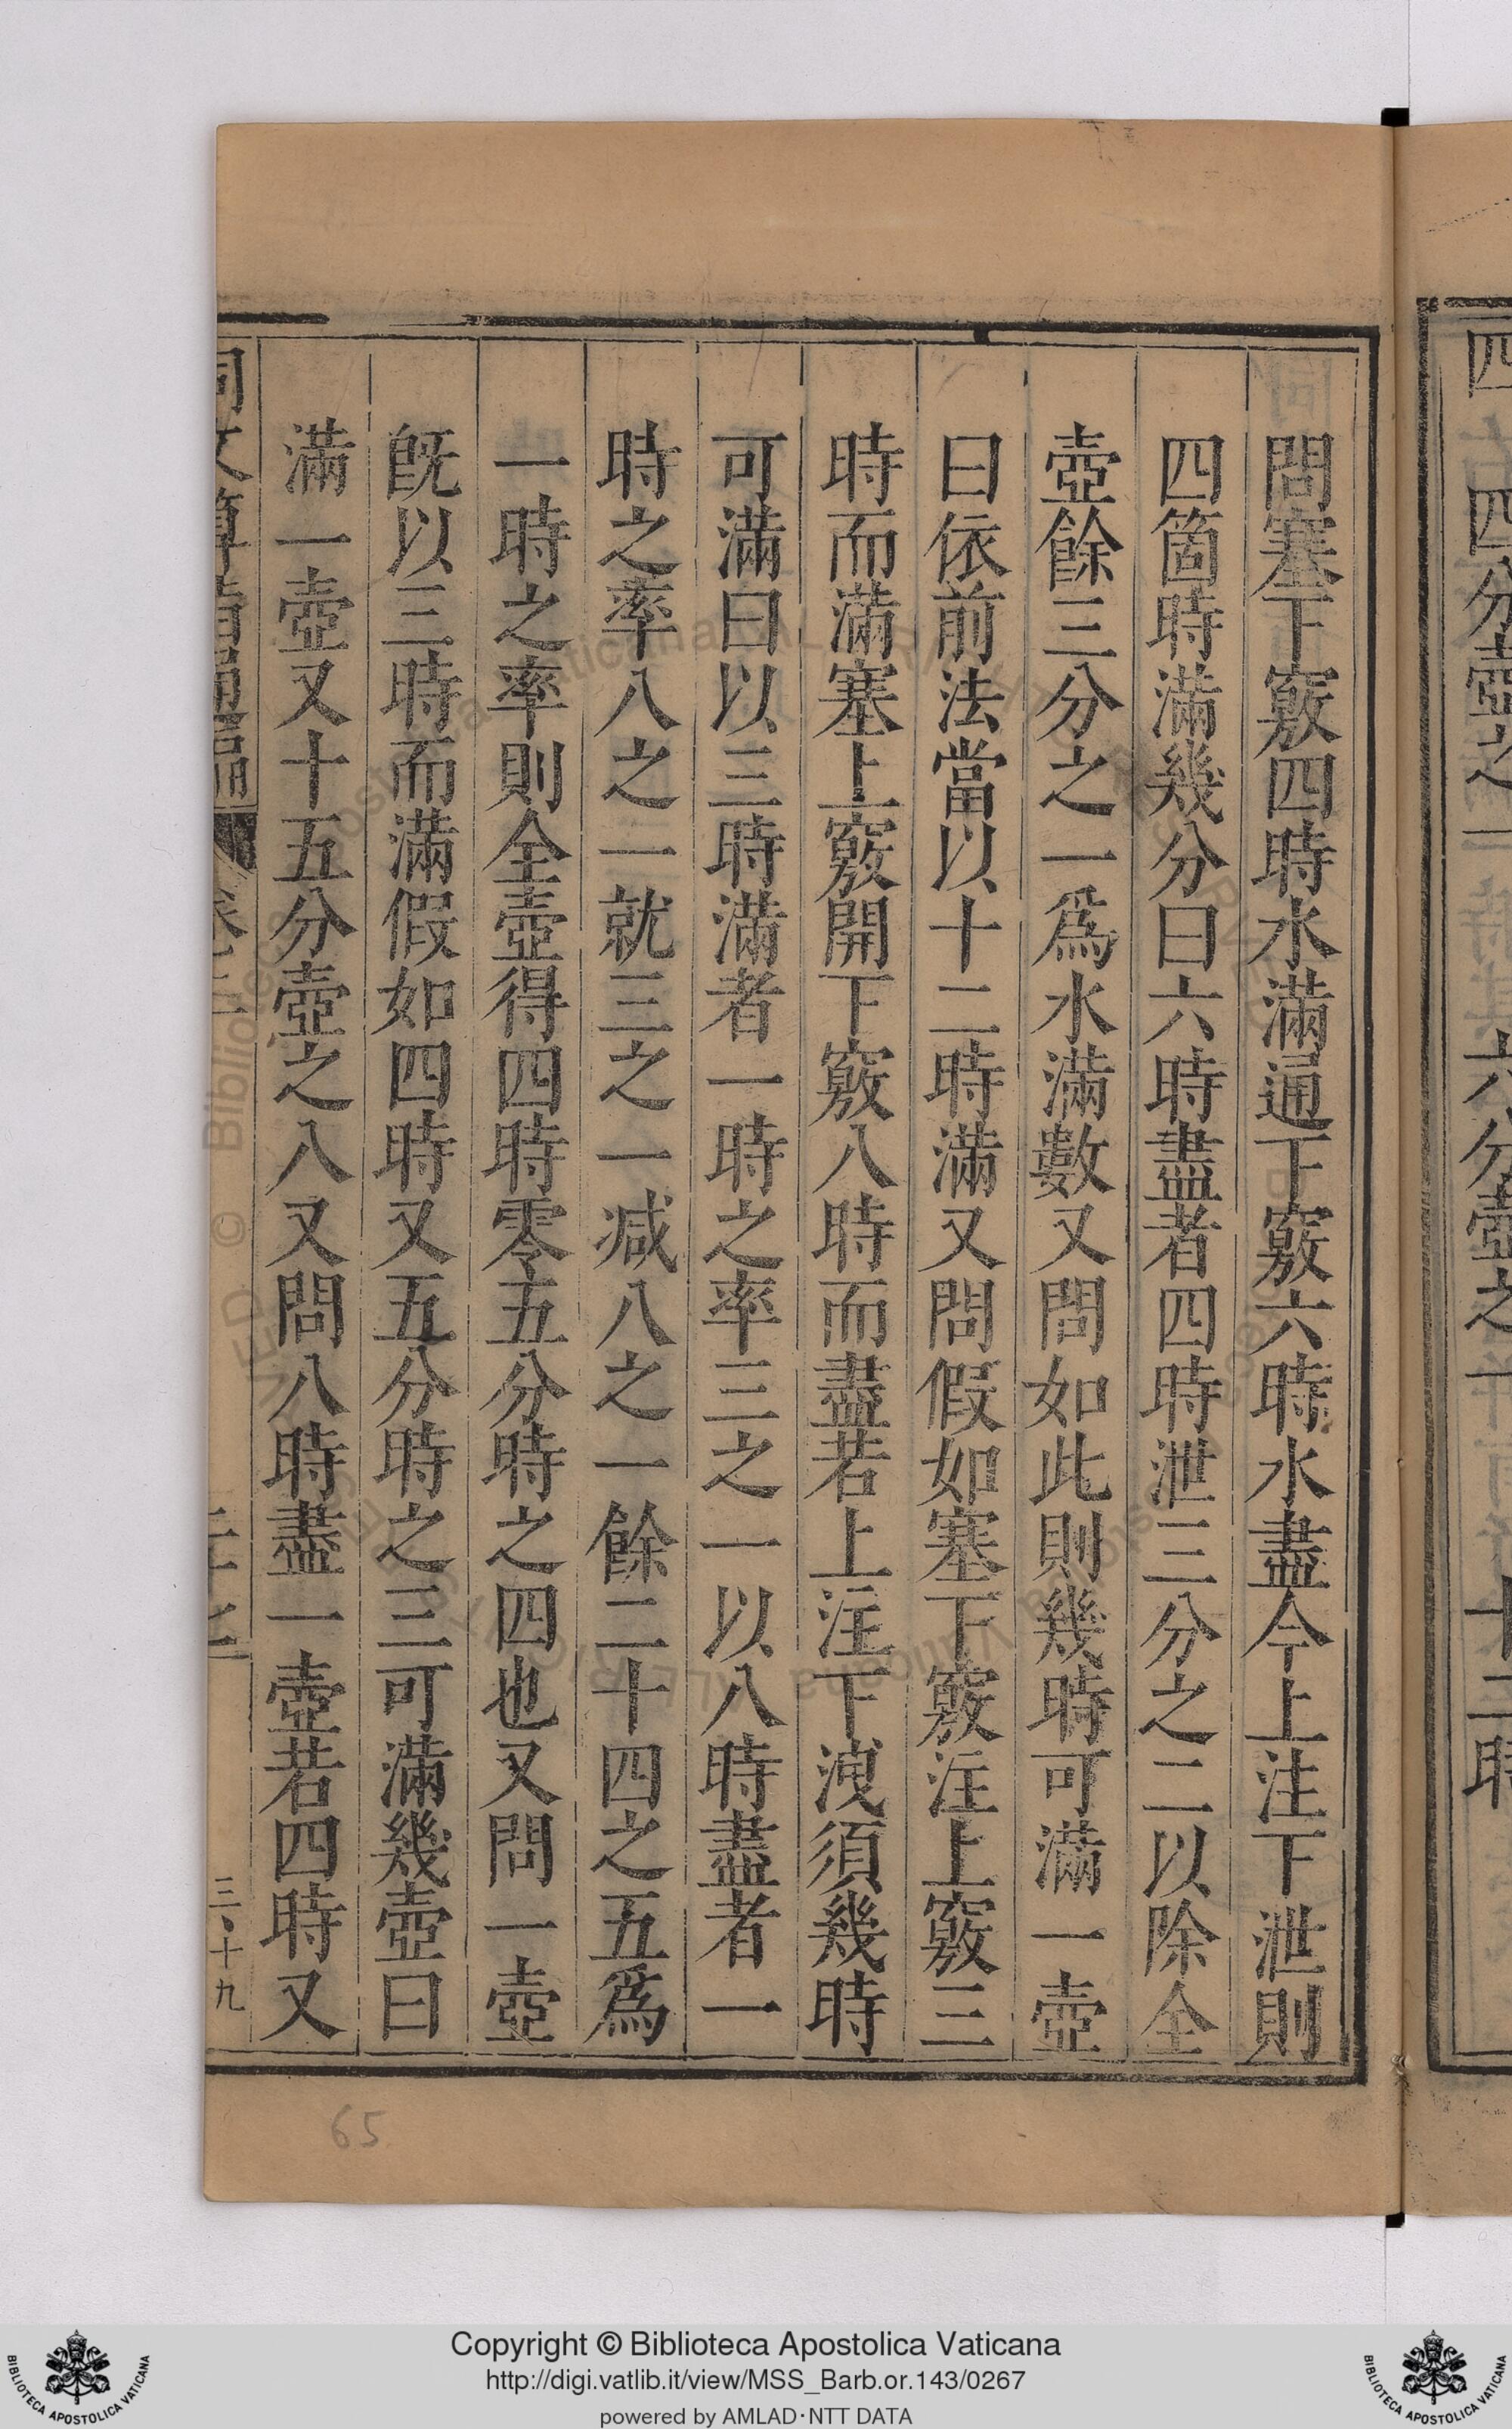 問塞下竅四時水滿通下竅六時水盡今上注下泄則
四箇時滿幾分曰六時盡者四時泄三分之二以除全
壺餘三分之一爲水滿數又問如此則幾時可滿一壺
曰依前法當以十二時滿又問假如塞下竅注上竅三
時而滿塞上竅開下竅八時而盡若上注下洩須幾時
可滿曰以三時滿者一時之率三之一以八時盡者一
時之率八之一就三之一减八之一餘二十四之五爲
一時之率則全壺得四時零五分時之四也又問一壺
旣以三時而滿假如四時又五分時之三可滿幾壺曰
滿一壺又十五分壺之八又問八時盡一壺若四時又
同文算指通編
卷三
二十七
三、十九
65
Copyright © Biblioteca Apostolica Vaticana
http://digi.vatlib.it/view/MSS_Barb.or.143/0267
powered by AMLAD·NTT DATA
BIBLIOTECA APOSTOLICA VATICANA
BIBLIOTECA APOSTOLICA VATICANA